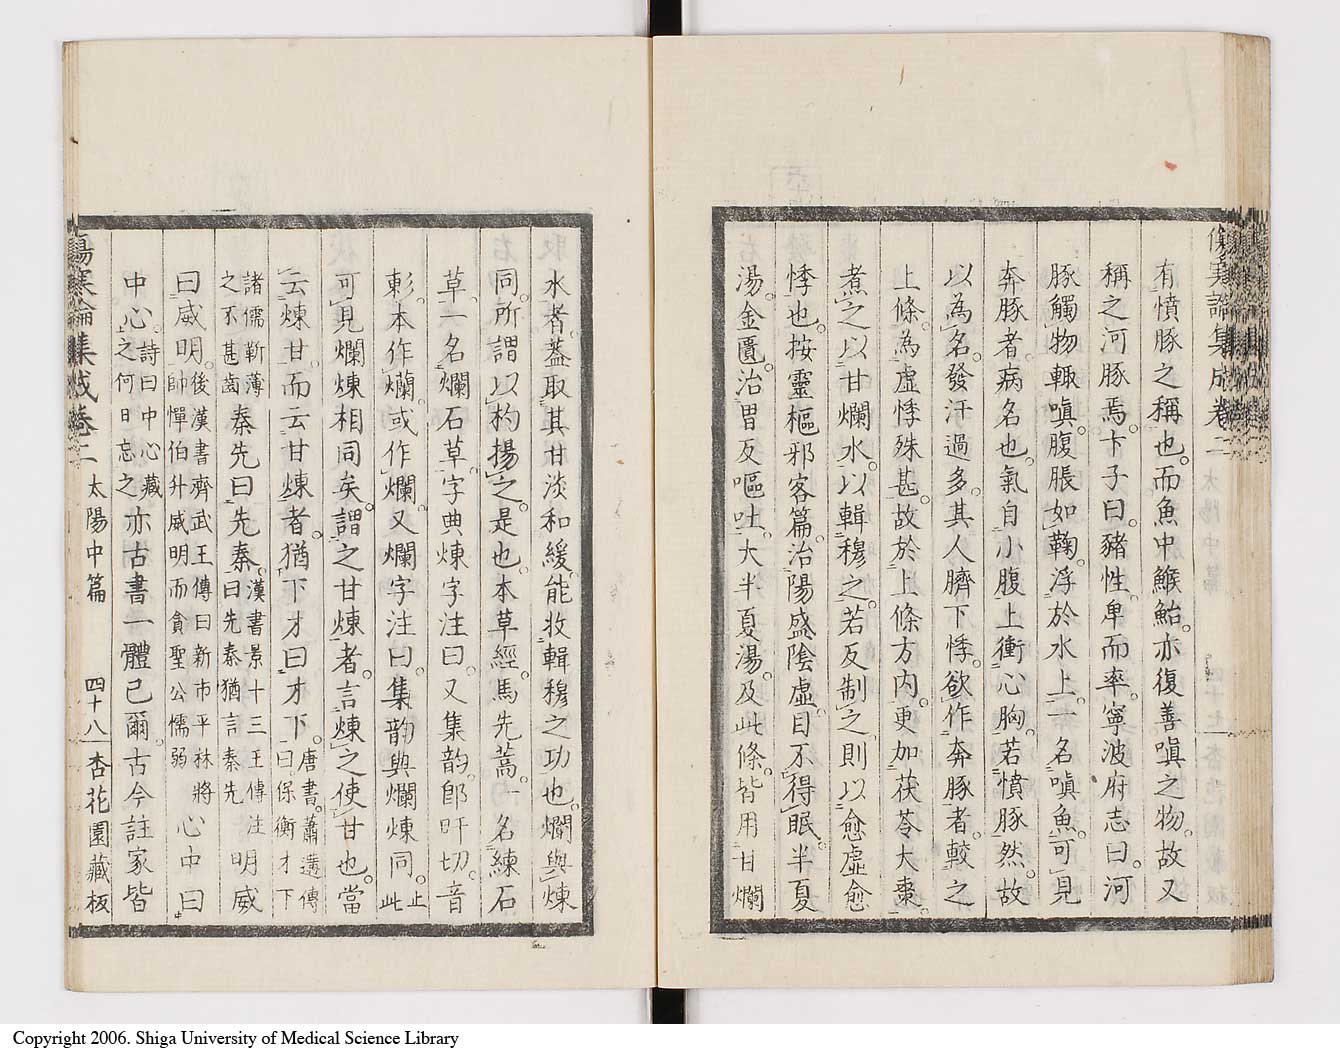 傷寒論集成卷二
有憤豚之稱也。而魚中鯸鮐。亦復善嗔之物。故又
稱之河豚焉。卞子曰。豬性卑而率。寧波府志曰。河
豚觸物輙嗔。腹脹如鞠。浮於水上。一名嗔魚。可見
奔豚者。病名也。氣自小腹上衝心胸。若憤豚然。故
以為名。發汗過多。其人臍下悸。欲作奔豚者。較之
上條。為虛悸殊甚。故於上條方内。更加茯苓大棗。
煮之以甘爛水。以輯穆之。若反制之。則以愈虛愈
悸也。按靈樞邪客篇。治陽盛陰虛。目不得眠。半夏
湯。金匱。治胃反嘔吐。大半夏湯。及此條。皆用甘爛
水者。葢取其甘淡和緩。能收輯穆之功也。爛與煉
同。所謂以杓揚之。是也。本草經。馬先蒿。一名練石
草。一名爛石草。字典煉字注曰。又集韵。郎旰切。音
爛。本作爤。或作爛。又爛字注曰。集韵與爛煉同。止此
可見爛煉相同矣。謂之甘煉者。言煉之使甘也。當
云煉甘。而云甘煉者。猶下才曰才下。唐書。蕭遘傳曰保衡才下
諸儒靳薄之不甚齒秦先曰先秦。漢書景十三王傳注曰先泰猶言秦先明威
曰威明。後漢書齊武王傳曰新市平林將帥憚伯升威明而貪聖公懦弱心中曰
中心。詩曰中心藏之何日忘之亦古書一體已爾。古今註家皆
傷寒論集成卷二 太陽中篇 四十八 杏花園藏板
Copyright 2006. Shiga University of Medical Science Library